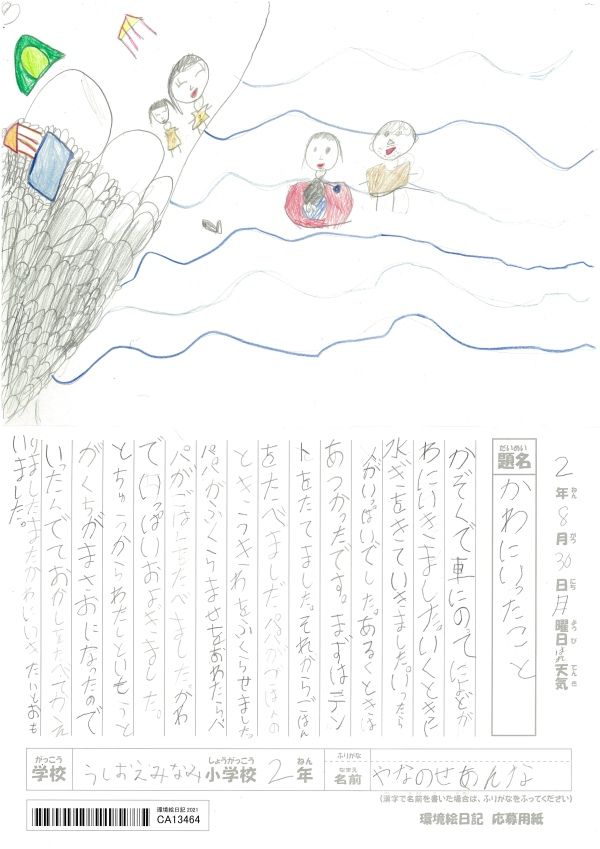 2年8月30日月曜日はれ天気
題名 かわにいったこと
かぞくで車にのってによどが
わにいきました。いくときに
水ぎをきていきました。いったら
人がいっぱいでした。あるくときは
あつかったです。まずはテン
トをたてました。それからごはん
をたべました。パパがごはんの
ときうきわをふくらませました
パパがふくらませをおわたらパ
パがごはんをたべましたがわ
でいっぱいおよぎました。
とちゅうからわたしといもうと
がくちがまさおになったので
いったんでておかしをたべてかえ
りましたまたかわにいきたいとおも
いました。
学校 うしおえみなみ小学校 2年
ふりがな
名前 やなのせあんな
(漢字で名前を書いた場合は、ふりがなをふってください)
環境絵日記 応募用紙
環境絵日記 2021
CA13464